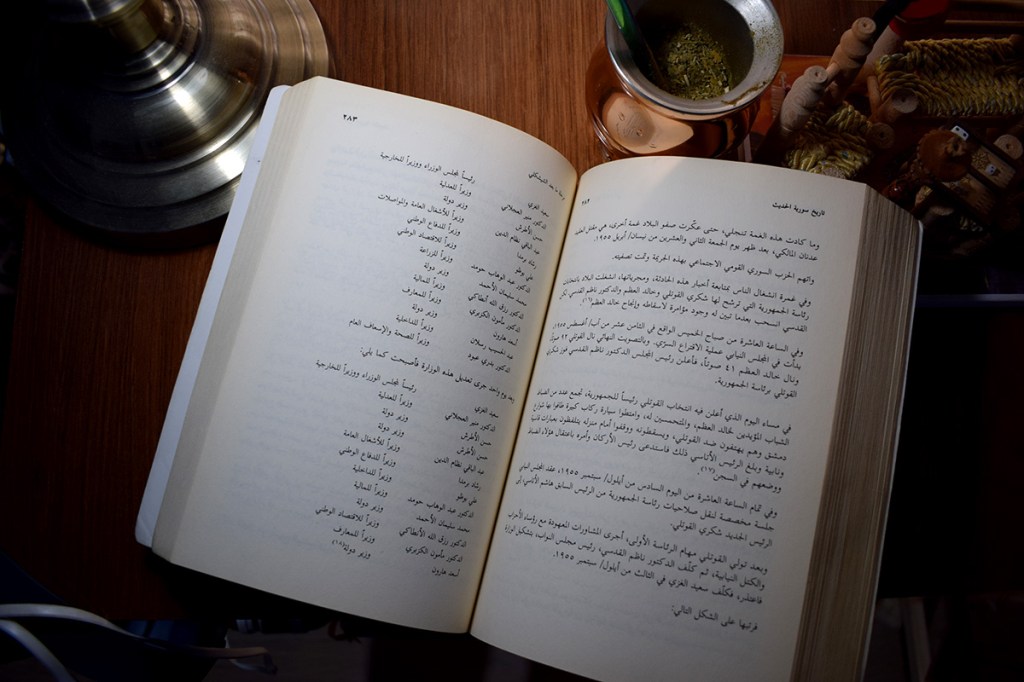 تاريخ سورية الحديث ٢٨٢
وما كادت هذه الغمة تنجلي، حتى عكّرت صفو البلاد غمة أخرى، هي مقتل العقيد
عدنان المالكي، بعد ظهر يوم الجمعة الثاني والعشرين من نيسان/ أبريل ١٩٥٥.
واتهم الحزب السوري القومي الاجتماعي بهذه الجريمة وتمت تصفيته.
وفي غمرة انشغال الناس بمتابعة أخبار هذه الحادثة، ومجرياتها، انشغلت البلاد بانتخابات
رئاسة الجمهورية التي ترشح لها شكري القوتلي وخالد العظم والدكتور ناظم القدسي لكن
القدسي انسحب بعدما تبين له وجود مؤامرة لاسقاطه وإنجاح خالد العظم
وفي الساعة العاشرة من صباح الخميس الواقع في الثامن عشر من آب/ أغسطس ١٩٥٥
بدأت في المجلس النيابي عملية الاقتراع السرّي. وبالتصويت النهائي نال القوتلي ٩٢ صوتاً
ونال خالد العظم ٤١ صوتاً، فأعلن رئيس المجلس الدكتور ناظم القدسي فوز شكري
القوتلي برئاسة الجمهورية.
في مساء اليوم الذي أعلن فيه انتخاب القوتلي رئيساً للجمهورية، تجمع عدد من الضباط
الشباب المؤيدين لخالد العظم، والمتحمسين له، وامتطوا سيارة ركاب كبيرة طافوا بها شوارع
دمشق وهم يهتفون ضد القوتلي، ويسقطونه ووقفوا أمام منزله يتلفظون بعبارات نابية
ونابية وبلغ الرئيس الأتاسي ذلك فاستدعى رئيس الأركان وأمره باعتقال هؤلاء الضباط
ووضعهم في السجن
وفي تمام الساعة العاشرة من اليوم السادس من أيلول/ سبتمبر ١٩٥٥، عقد المجلس النيابي
جلسة مخصصة لنقل صلاحيات رئاسة الجمهورية من الرئيس السابق هاشم الأتاسي، إلى
الرئيس الجديد شكري القوتلي.
وبعد تولي القوتلي مهام الرئاسة الأولى، أجرى المشاورات المعهودة مع رؤساء الأحزاب
والكتل النيابية، ثم كلّف الدكتور ناظم القدسي، رئيس مجلس النواب، بتشكيل الوزارة
فاعتذر، فكلّف سعيد الغزي في الثالث من أيلول/ سبتمبر ١٩٥٥.
فرتبها على الشكل التالي:
مرحلة ما بعد الشيشكلي ٢٨٣
سعيد الغزي رئيساً لمجلس الوزراء ووزيراً للخارجية
الدكتور منير العجلاني وزيراً للعدلية
حسن الأطرش وزير دولة
عبد الباقي نظام الدين وزيراً للأشغال العامة والمواصلات
رشاد برمدا وزيراً للدفاع الوطني
علي بوظو وزيراً للاقتصاد الوطني
الدكتور عبد الوهاب حومد وزيراً للزراعة
محمد سليمان الأحمد وزير دولة
الدكتور رزق الله أنطاكي وزيراً للمالية
الدكتور مأمون الكزبري وزيراً للمعارف
أسعد هارون وزير دولة
عبد الحسيب رسلان وزيراً للداخلية
الدكتور بدري عبود وزيراً للصحة والإسعاف العام
وبعد يوم واحد جرى تعديل هذه الوزارة فأصبحت كما يلي:
سعيد الغزي رئيساً لمجلس الوزراء ووزيراً للخارجية
الدكتور منير العجلاني وزيراً للعدلية
حسن الأطرش وزير دولة
عبد الباقي نظام الدين وزيراً للأشغال العامة
رشاد برمدا وزيراً للدفاع الوطني
علي بوظو وزيراً للداخلية
الدكتور عبد الوهاب حومد وزيراً للمالية
محمد سليمان الأحمد وزير دولة
الدكتور رزق الله الأنطاكي وزيراً للاقتصاد الوطني
الدكتور مأمون الكزبري وزيراً للمعارف
أسعد هارون وزير دولة